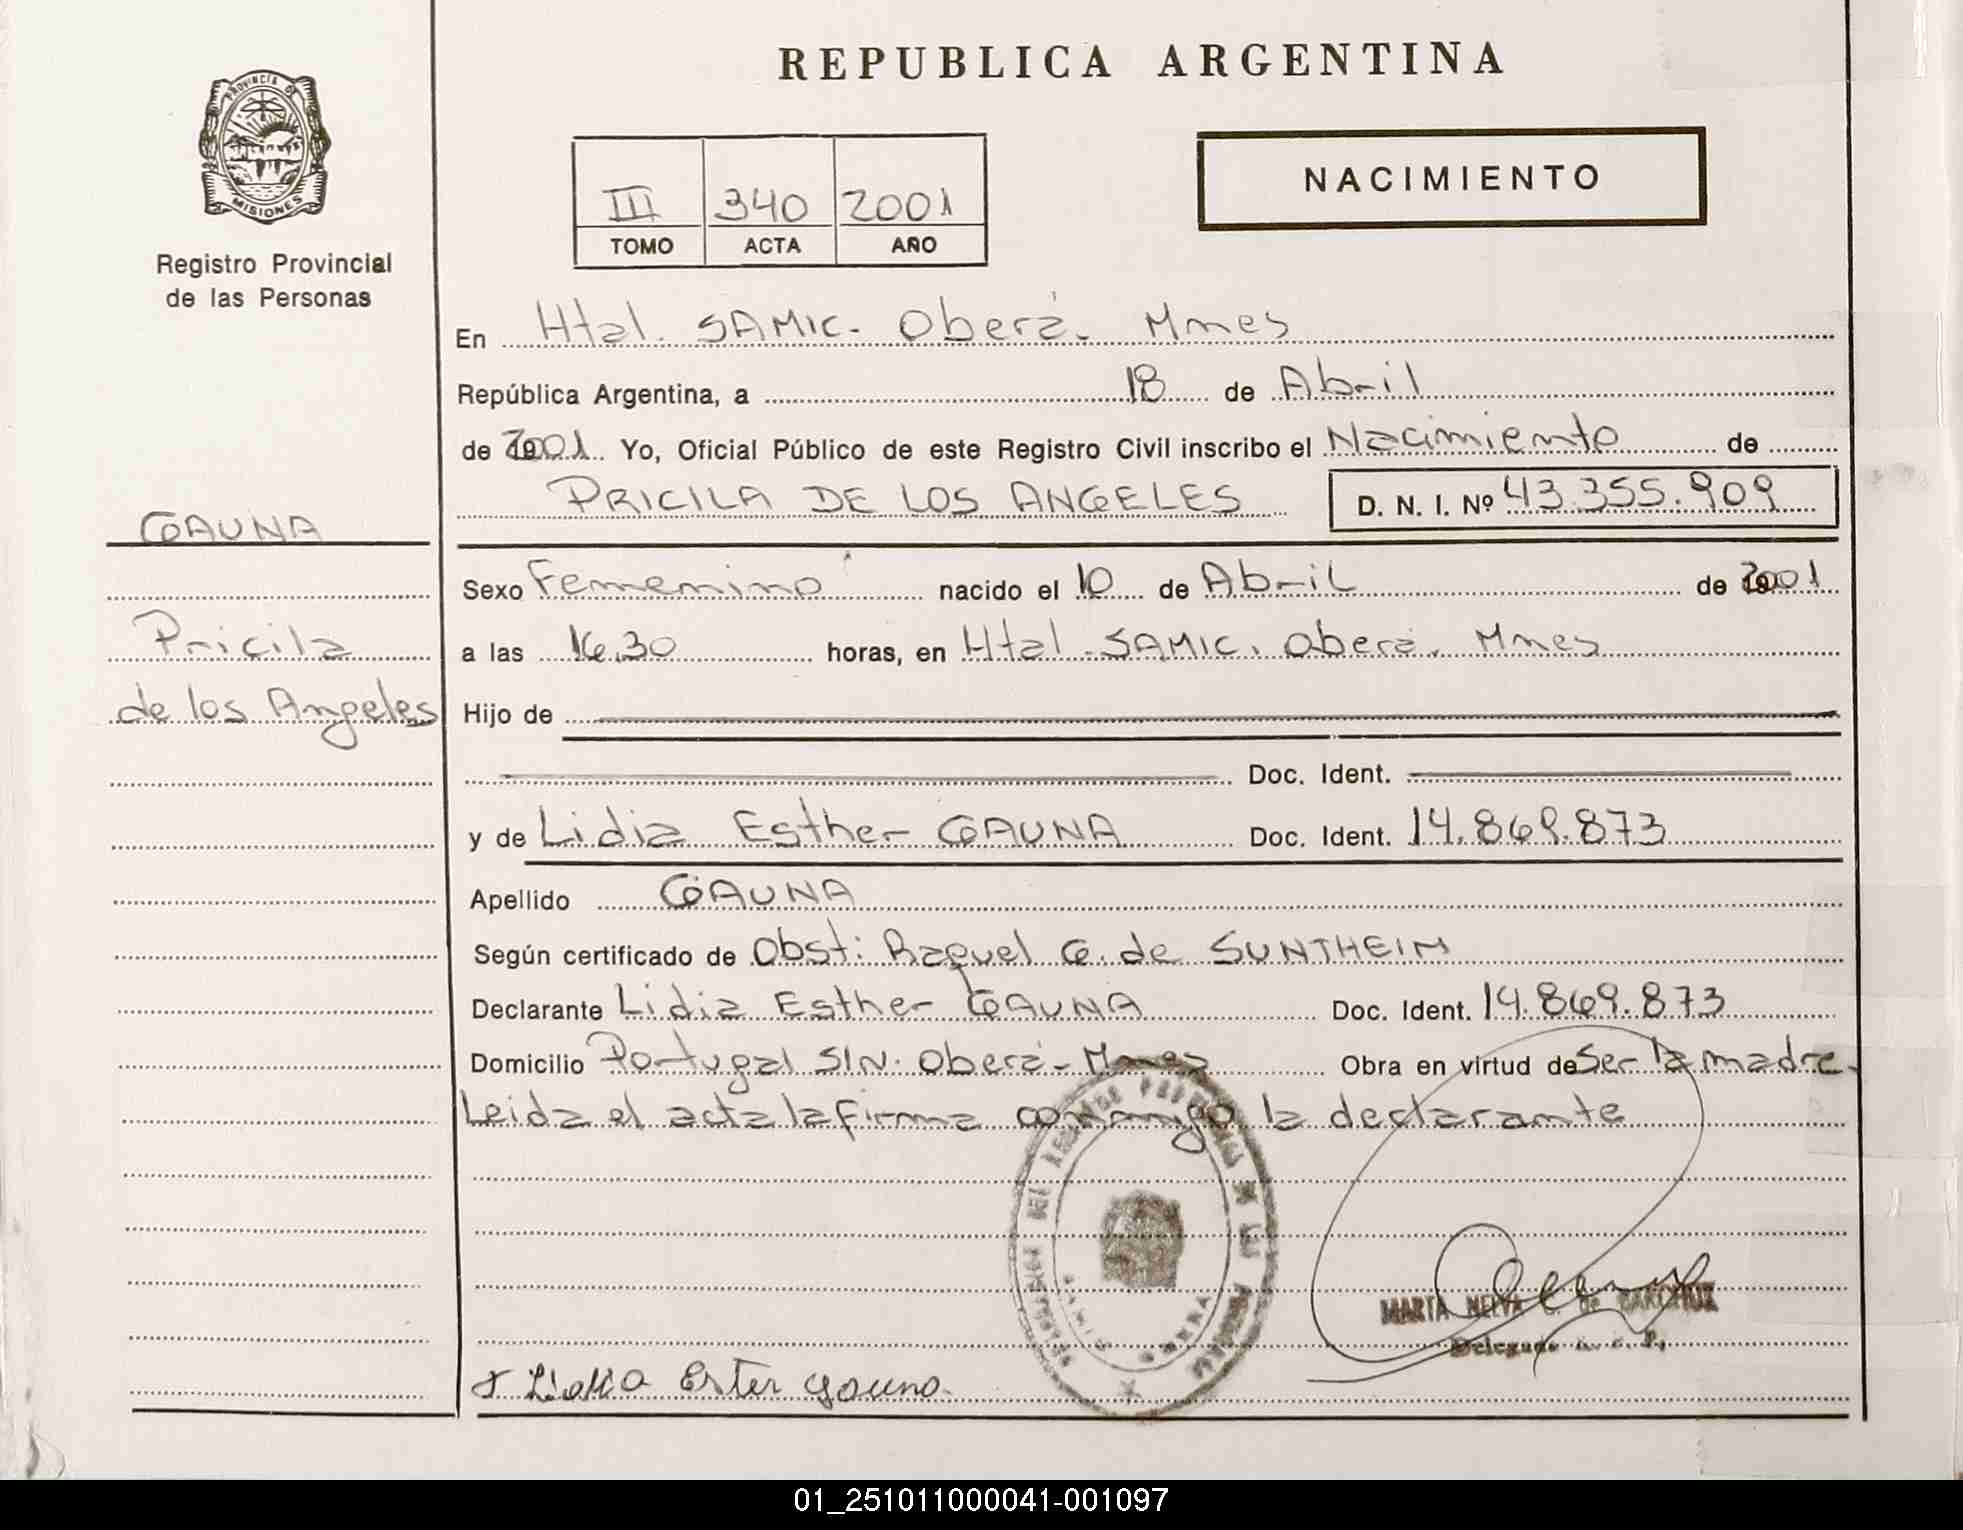 REPUBLICA ARGENTINA
PROVINCIA DE
MISIONES
Registro Provincial
de las Personas
III 340 2001
TOMO ACTA AÑO
NACIMIENTO
En Htal. SAMIC. Oberá. Mnes
República Argentina, a 18 de Abril
de 2001. Yo, Oficial Público de este Registro Civil inscribo el Nacimiento de
PRICILA DE LOS ANGELES D. N. I. Nº 43.355.909
GAUNA
Pricila
de los Angeles
Sexo Femenino nacido el 10 de Abril de 2001
a las 16,30 horas, en Htal. SAMIC. Oberá. Mnes
Hijo de
Doc. Ident.
y de Lidia Esther GAUNA Doc. Ident. 14.869.873
Apellido GAUNA
Según certificado de Obst: Raquel G. de SUNTHEIM
Declarante Lidia Esther GAUNA Doc. Ident. 14.869.873
Domicilio Portugal S/N. Oberá - Mnes Obra en virtud de Ser la madre.
Leida el acta la firma conmigo la declarante
MARTA de
Lidia Ester Gauna.
01_251011000041-001097